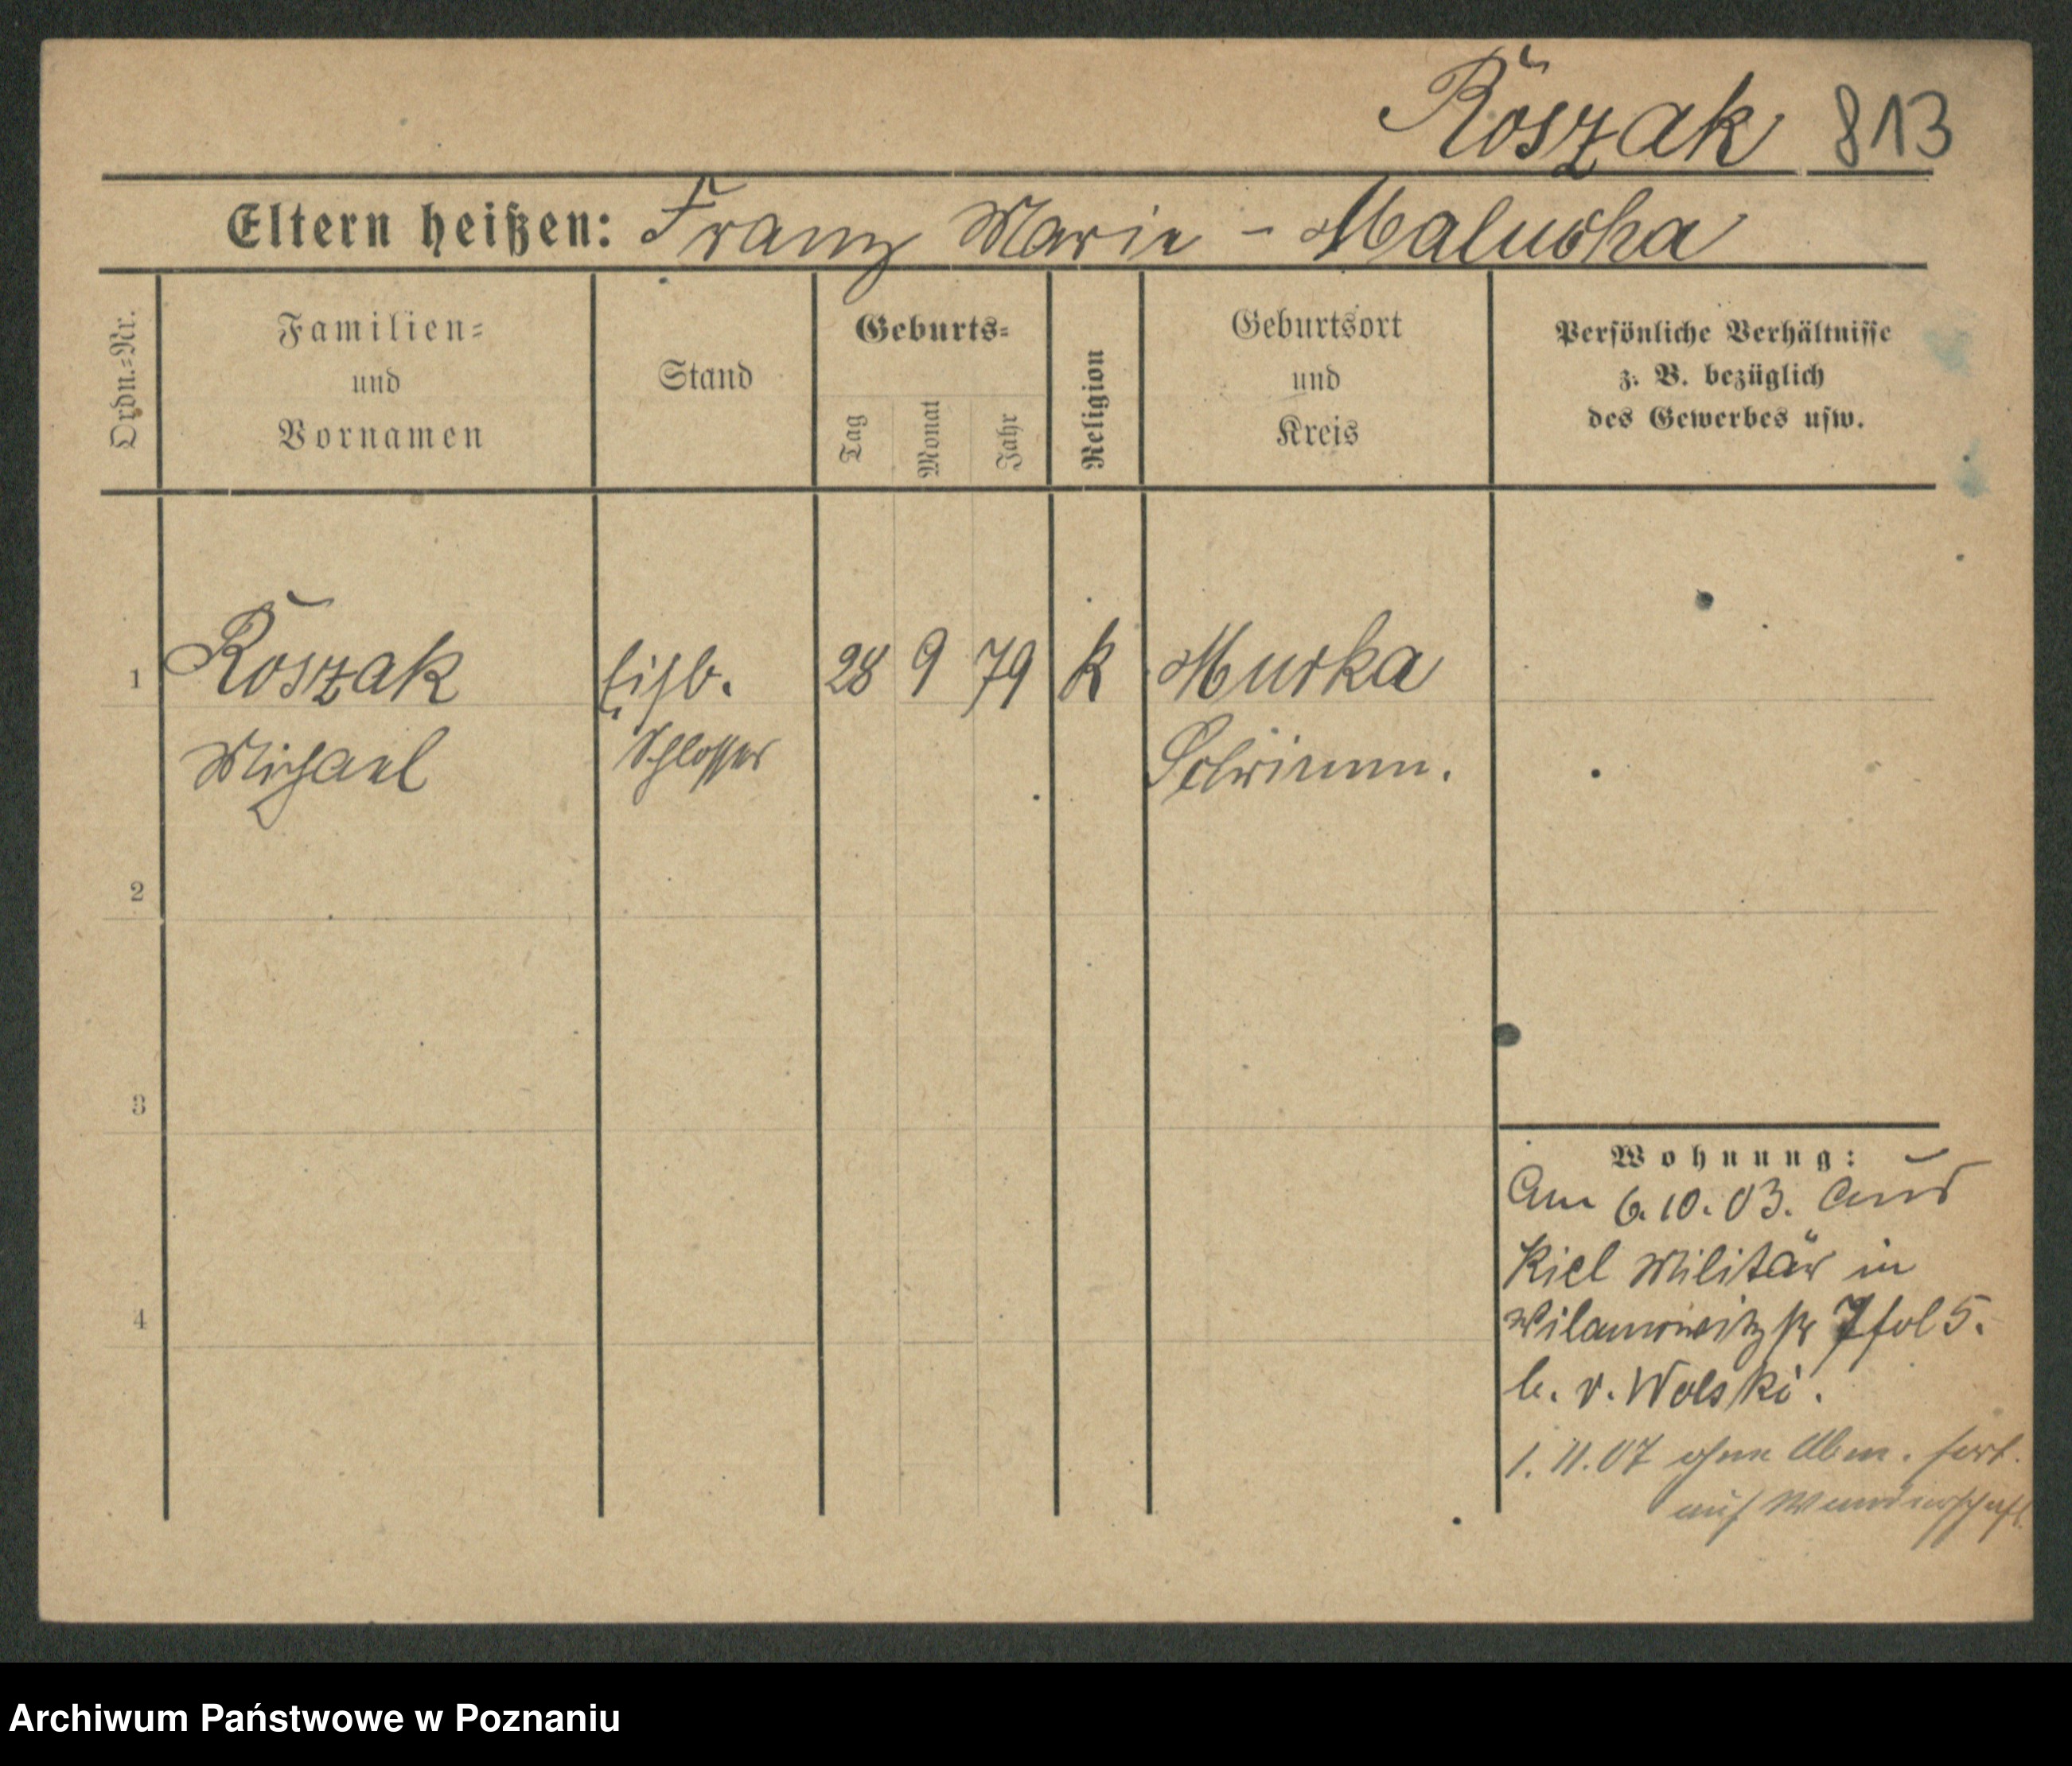 Roszak 813
Eltern heißen: Franz Marie - Maluska
Ordn.=Nr.
Familien=
und
Vornamen
Stand
Geburts=
Tag
Monat
Jahr
Religion
Geburtsort
und
Kreis
Persönliche Verhältnisse
z. B. bezüglich
des Gewerbes usw.
1 Roszak 28 9 79 k Murka
Michael Schlosser Schrimm.
2
3
4
Wohnung:
Am 6.10.03. aus
Kiel Militär in
Wilamowitzstr 7
b. v. Wolski.
1.11.07 ohne Abm. fort.
auf Wanderschaft
Archiwum Państwowe w Poznaniu